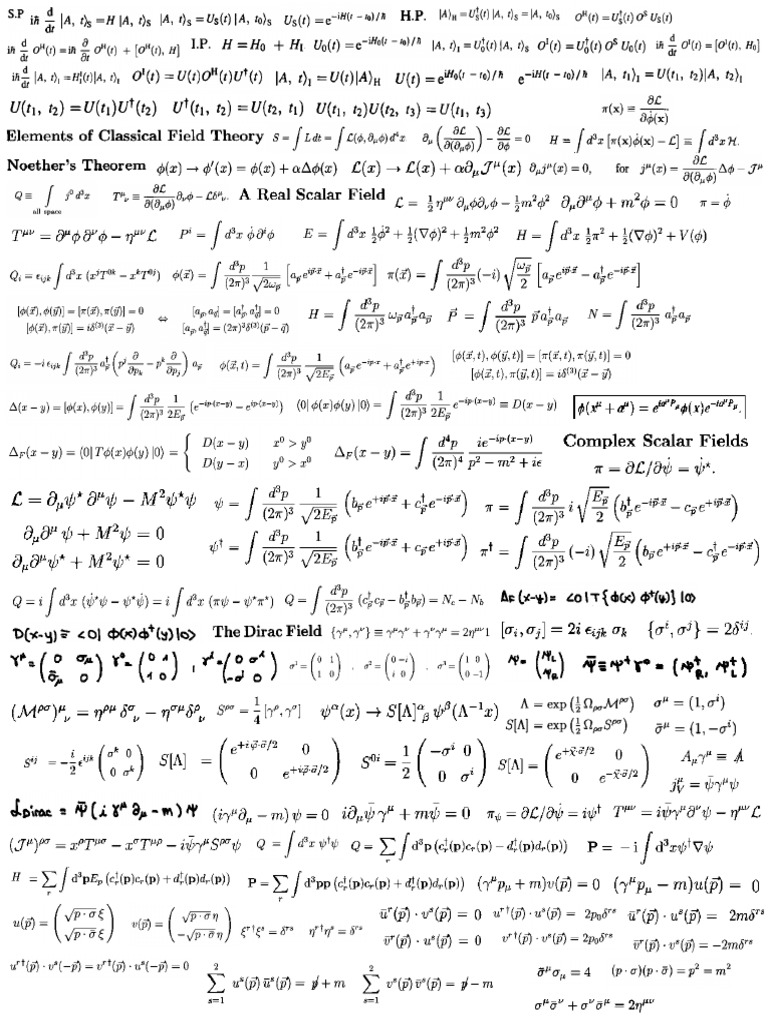 S.P iħ d/dt |A, t⟩_S = H |A, t⟩_S |A, t⟩_S = U_S(t) |A, t_0⟩_S U_S(t) = e^{-iH(t - t_0)/ħ} H.P. |A⟩_H = U_S^†(t) |A, t⟩_S = |A, t_0⟩_S O^H(t) = U_S^†(t) O^S U_S(t)
iħ d/dt O^H(t) = iħ ∂/∂t O^H(t) + [O^H(t), H] I.P. H = H_0 + H_I U_0(t) = e^{-iH_0(t - t_0)/ħ} |A, t⟩_I = U_0^†(t) |A, t⟩_S O^I(t) = U_0^†(t) O^S U_0(t) iħ d/dt O^I(t) = [O^I(t), H_0]
iħ d/dt |A, t⟩_I = H_I^I(t) |A, t⟩_I O^I(t) = U(t)O^H(t)U^†(t) |A, t⟩_I = U(t) |A⟩_H U(t) = e^{iH_0(t - t_0)/ħ} e^{-iH(t - t_0)/ħ} |A, t_1⟩_I = U(t_1, t_2) |A, t_2⟩_I
U(t_1, t_2) = U(t_1)U^†(t_2) U^†(t_1, t_2) = U(t_2, t_1) U(t_1, t_2)U(t_2, t_3) = U(t_1, t_3) π(x) = ∂ℒ/∂φ̇(x)
Elements of Classical Field Theory S = ∫ L dt = ∫ ℒ(φ, ∂_μφ) d^4x ∂_μ (∂ℒ/∂(∂_μφ)) − ∂ℒ/∂φ = 0 H = ∫ d^3x [π(x)φ̇(x) − ℒ] ≡ ∫ d^3x ℋ.
Noether's Theorem φ(x) → φ'(x) = φ(x) + αΔφ(x) ℒ(x) → ℒ(x) + α∂_μ𝒥^μ(x) ∂_μ j^μ(x) = 0, for j^μ(x) = ∂ℒ/∂(∂_μφ) Δφ − 𝒥^μ
Q ≡ ∫_{all space} j^0 d^3x T^μ_ν ≡ ∂ℒ/∂(∂_μφ) ∂_νφ − ℒδ^μ_ν. A Real Scalar Field ℒ = 1/2 η^{μν} ∂_μφ∂_νφ − 1/2 m^2φ^2 ∂_μ∂^μφ + m^2φ = 0 π = φ̇
T^{μν} = ∂^μφ ∂^νφ − η^{μν}ℒ P^i = ∫ d^3x φ̇ ∂^iφ E = ∫ d^3x 1/2 φ̇^2 + 1/2 (∇φ)^2 + 1/2 m^2φ^2 H = ∫ d^3x 1/2 π^2 + 1/2 (∇φ)^2 + V(φ)
Q_i = ε_{ijk} ∫ d^3x (x^jT^{0k} − x^kT^{0j}) φ(x⃗) = ∫ d^3p/(2π)^3 1/√(2ω_p⃗) [a_p⃗ e^{ip⃗·x⃗} + a_p⃗^† e^{−ip⃗·x⃗}] π(x⃗) = ∫ d^3p/(2π)^3 (−i) √(ω_p⃗/2) [a_p⃗ e^{ip⃗·x⃗} − a_p⃗^† e^{−ip⃗·x⃗}]
[φ(x⃗), φ(y⃗)] = [π(x⃗), π(y⃗)] = 0 ⇔ [a_p⃗, a_q⃗] = [a_p⃗^†, a_q⃗^†] = 0 H = ∫ d^3p/(2π)^3 ω_p⃗ a_p⃗^† a_p⃗ P⃗ = ∫ d^3p/(2π)^3 p⃗ a_p⃗^† a_p⃗ N = ∫ d^3p/(2π)^3 a_p⃗^† a_p⃗
[φ(x⃗), π(y⃗)] = iδ^{(3)}(x⃗ − y⃗) [a_p⃗, a_q⃗^†] = (2π)^3δ^{(3)}(p⃗ − q⃗)
Q_i = −i ε_{ijk} ∫ d^3p/(2π)^3 a_p⃗^† (p^j ∂/∂p_k − p^k ∂/∂p_j) a_p⃗ φ(x⃗, t) = ∫ d^3p/(2π)^3 1/√(2E_p⃗) (a_p⃗ e^{−ip·x} + a_p⃗^† e^{+ip·x}) [φ(x⃗, t), φ(y⃗, t)] = [π(x⃗, t), π(y⃗, t)] = 0
[φ(x⃗, t), π(y⃗, t)] = iδ^{(3)}(x⃗ − y⃗)
Δ(x − y) = [φ(x), φ(y)] = ∫ d^3p/(2π)^3 1/2E_p⃗ (e^{−ip·(x−y)} − e^{ip·(x−y)}) ⟨0| φ(x)φ(y) |0⟩ = ∫ d^3p/(2π)^3 1/2E_p⃗ e^{−ip·(x−y)} ≡ D(x − y) φ(x^μ + a^μ) = e^{ia^μP_μ} φ(x) e^{−ia^μP_μ}.
Δ_F(x − y) = ⟨0| Tφ(x)φ(y) |0⟩ = { D(x − y) x^0 > y^0 Δ_F(x − y) = ∫ d^4p/(2π)^4 ie^{−ip·(x−y)}/(p^2 − m^2 + iε) Complex Scalar Fields
D(y − x) y^0 > x^0 π = ∂ℒ/∂ψ̇ = ψ̇^⋆.
ℒ = ∂_μψ^⋆ ∂^μψ − M^2ψ^⋆ψ ψ = ∫ d^3p/(2π)^3 1/√(2E_p⃗) (b_p⃗ e^{+ip⃗·x⃗} + c_p⃗^† e^{−ip⃗·x⃗}) π = ∫ d^3p/(2π)^3 i √(E_p⃗/2) (b_p⃗^† e^{−ip⃗·x⃗} − c_p⃗ e^{+ip⃗·x⃗})
∂_μ∂^μ ψ + M^2ψ = 0
∂_μ∂^μψ^⋆ + M^2ψ^⋆ = 0 ψ^† = ∫ d^3p/(2π)^3 1/√(2E_p⃗) (b_p⃗^† e^{−ip⃗·x⃗} + c_p⃗ e^{+ip⃗·x⃗}) π^† = ∫ d^3p/(2π)^3 (−i) √(E_p⃗/2) (b_p⃗ e^{+ip⃗·x⃗} − c_p⃗^† e^{−ip⃗·x⃗})
Q = i ∫ d^3x (ψ̇^⋆ψ − ψ^⋆ψ̇) = i ∫ d^3x (πψ − ψ^⋆π^⋆) Q = ∫ d^3p/(2π)^3 (c_p⃗^† c_p⃗ − b_p⃗^† b_p⃗) = N_c − N_b Δ_F(x−y) = <0|T{φ(x) φ^†(y)}|0>
D(x−y) ≡ <0| φ(x)φ^†(y)|0> The Dirac Field {γ^μ, γ^ν} ≡ γ^μγ^ν + γ^νγ^μ = 2η^{μν}1 [σ_i, σ_j] = 2i ε_{ijk} σ_k {σ^i, σ^j} = 2δ^{ij}.
γ^μ = (0 σ_μ; σ̄_μ 0) γ^0 = (0 1; 1 0), γ^i = (0 σ^i; −σ^i 0) σ^1 = (0 1; 1 0), σ^2 = (0 −i; i 0), σ^3 = (1 0; 0 −1) ψ = (ψ_L; ψ_R) ψ̄ ≡ ψ^†γ^0 = (ψ_R^†, ψ_L^†)
(ℳ^{ρσ})^μ_ν = η^{ρμ} δ^σ_ν − η^{σμ} δ^ρ_ν S^{ρσ} = 1/4 [γ^ρ, γ^σ] ψ^α(x) → S[Λ]^α_β ψ^β(Λ^{−1}x) Λ = exp(1/2 Ω_{ρσ}ℳ^{ρσ}) σ^μ = (1, σ^i)
S[Λ] = exp(1/2 Ω_{ρσ}S^{ρσ}) σ̄^μ = (1, −σ^i)
S^{ij} = −i/2 ε^{ijk} (σ^k 0; 0 σ^k) S[Λ] = (e^{+iφ⃗·σ⃗/2} 0; 0 e^{+iφ⃗·σ⃗/2}) S^{0i} = 1/2 (−σ^i 0; 0 σ^i) S[Λ] = (e^{+χ⃗·σ⃗/2} 0; 0 e^{−χ⃗·σ⃗/2}) A_μγ^μ ≡ A̸
j_V^μ = ψ̄γ^μψ
ℒ_Dirac = ψ̄(iγ^μ ∂_μ − m)ψ (iγ^μ∂_μ − m) ψ = 0 i∂_μψ̄γ^μ + mψ̄ = 0 π_ψ = ∂ℒ/∂ψ̇ = iψ^† T^{μν} = iψ̄γ^μ∂^νψ − η^{μν}ℒ
(𝒥^μ)^{ρσ} = x^ρT^{μσ} − x^σT^{μρ} − iψ̄γ^μS^{ρσ}ψ Q = ∫ d^3x ψ^†ψ Q = ∑_r ∫ d^3p (c_r^†(p)c_r(p) − d_r^†(p)d_r(p)) P = −i ∫ d^3xψ^†∇ψ
H = ∑_r ∫ d^3pE_p (c_r^†(p)c_r(p) + d_r^†(p)d_r(p)) P = ∑_r ∫ d^3pp (c_r^†(p)c_r(p) + d_r^†(p)d_r(p)) (γ^μp_μ + m)v(p⃗) = 0 (γ^μp_μ − m)u(p⃗) = 0
u(p⃗) = (√(p · σ) ξ; √(p · σ̄) ξ) v(p⃗) = (√(p · σ) η; −√(p · σ̄) η) ξ^{r†}ξ^s = δ^{rs} η^{r†}η^s = δ^{rs} ū^r(p⃗) · v^s(p⃗) = 0 u^{r†}(p⃗) · u^s(p⃗) = 2p_0δ^{rs} ū^r(p⃗) · u^s(p⃗) = 2mδ^{rs}
v̄^r(p⃗) · u^s(p⃗) = 0 v^{r†}(p⃗) · v^s(p⃗) = 2p_0δ^{rs} v̄^r(p⃗) · v^s(p⃗) = −2mδ^{rs}
u^{r†}(p⃗) · v^s(−p⃗) = v^{r†}(p⃗) · u^s(−p⃗) = 0 ∑_{s=1}^{2} u^s(p⃗) ū^s(p⃗) = p̸ + m ∑_{s=1}^{2} v^s(p⃗) v̄^s(p⃗) = p̸ − m σ̄^μσ_μ = 4 (p · σ)(p · σ̄) = p^2 = m^2
σ^μσ̄^ν + σ^νσ̄^μ = 2η^{μν}